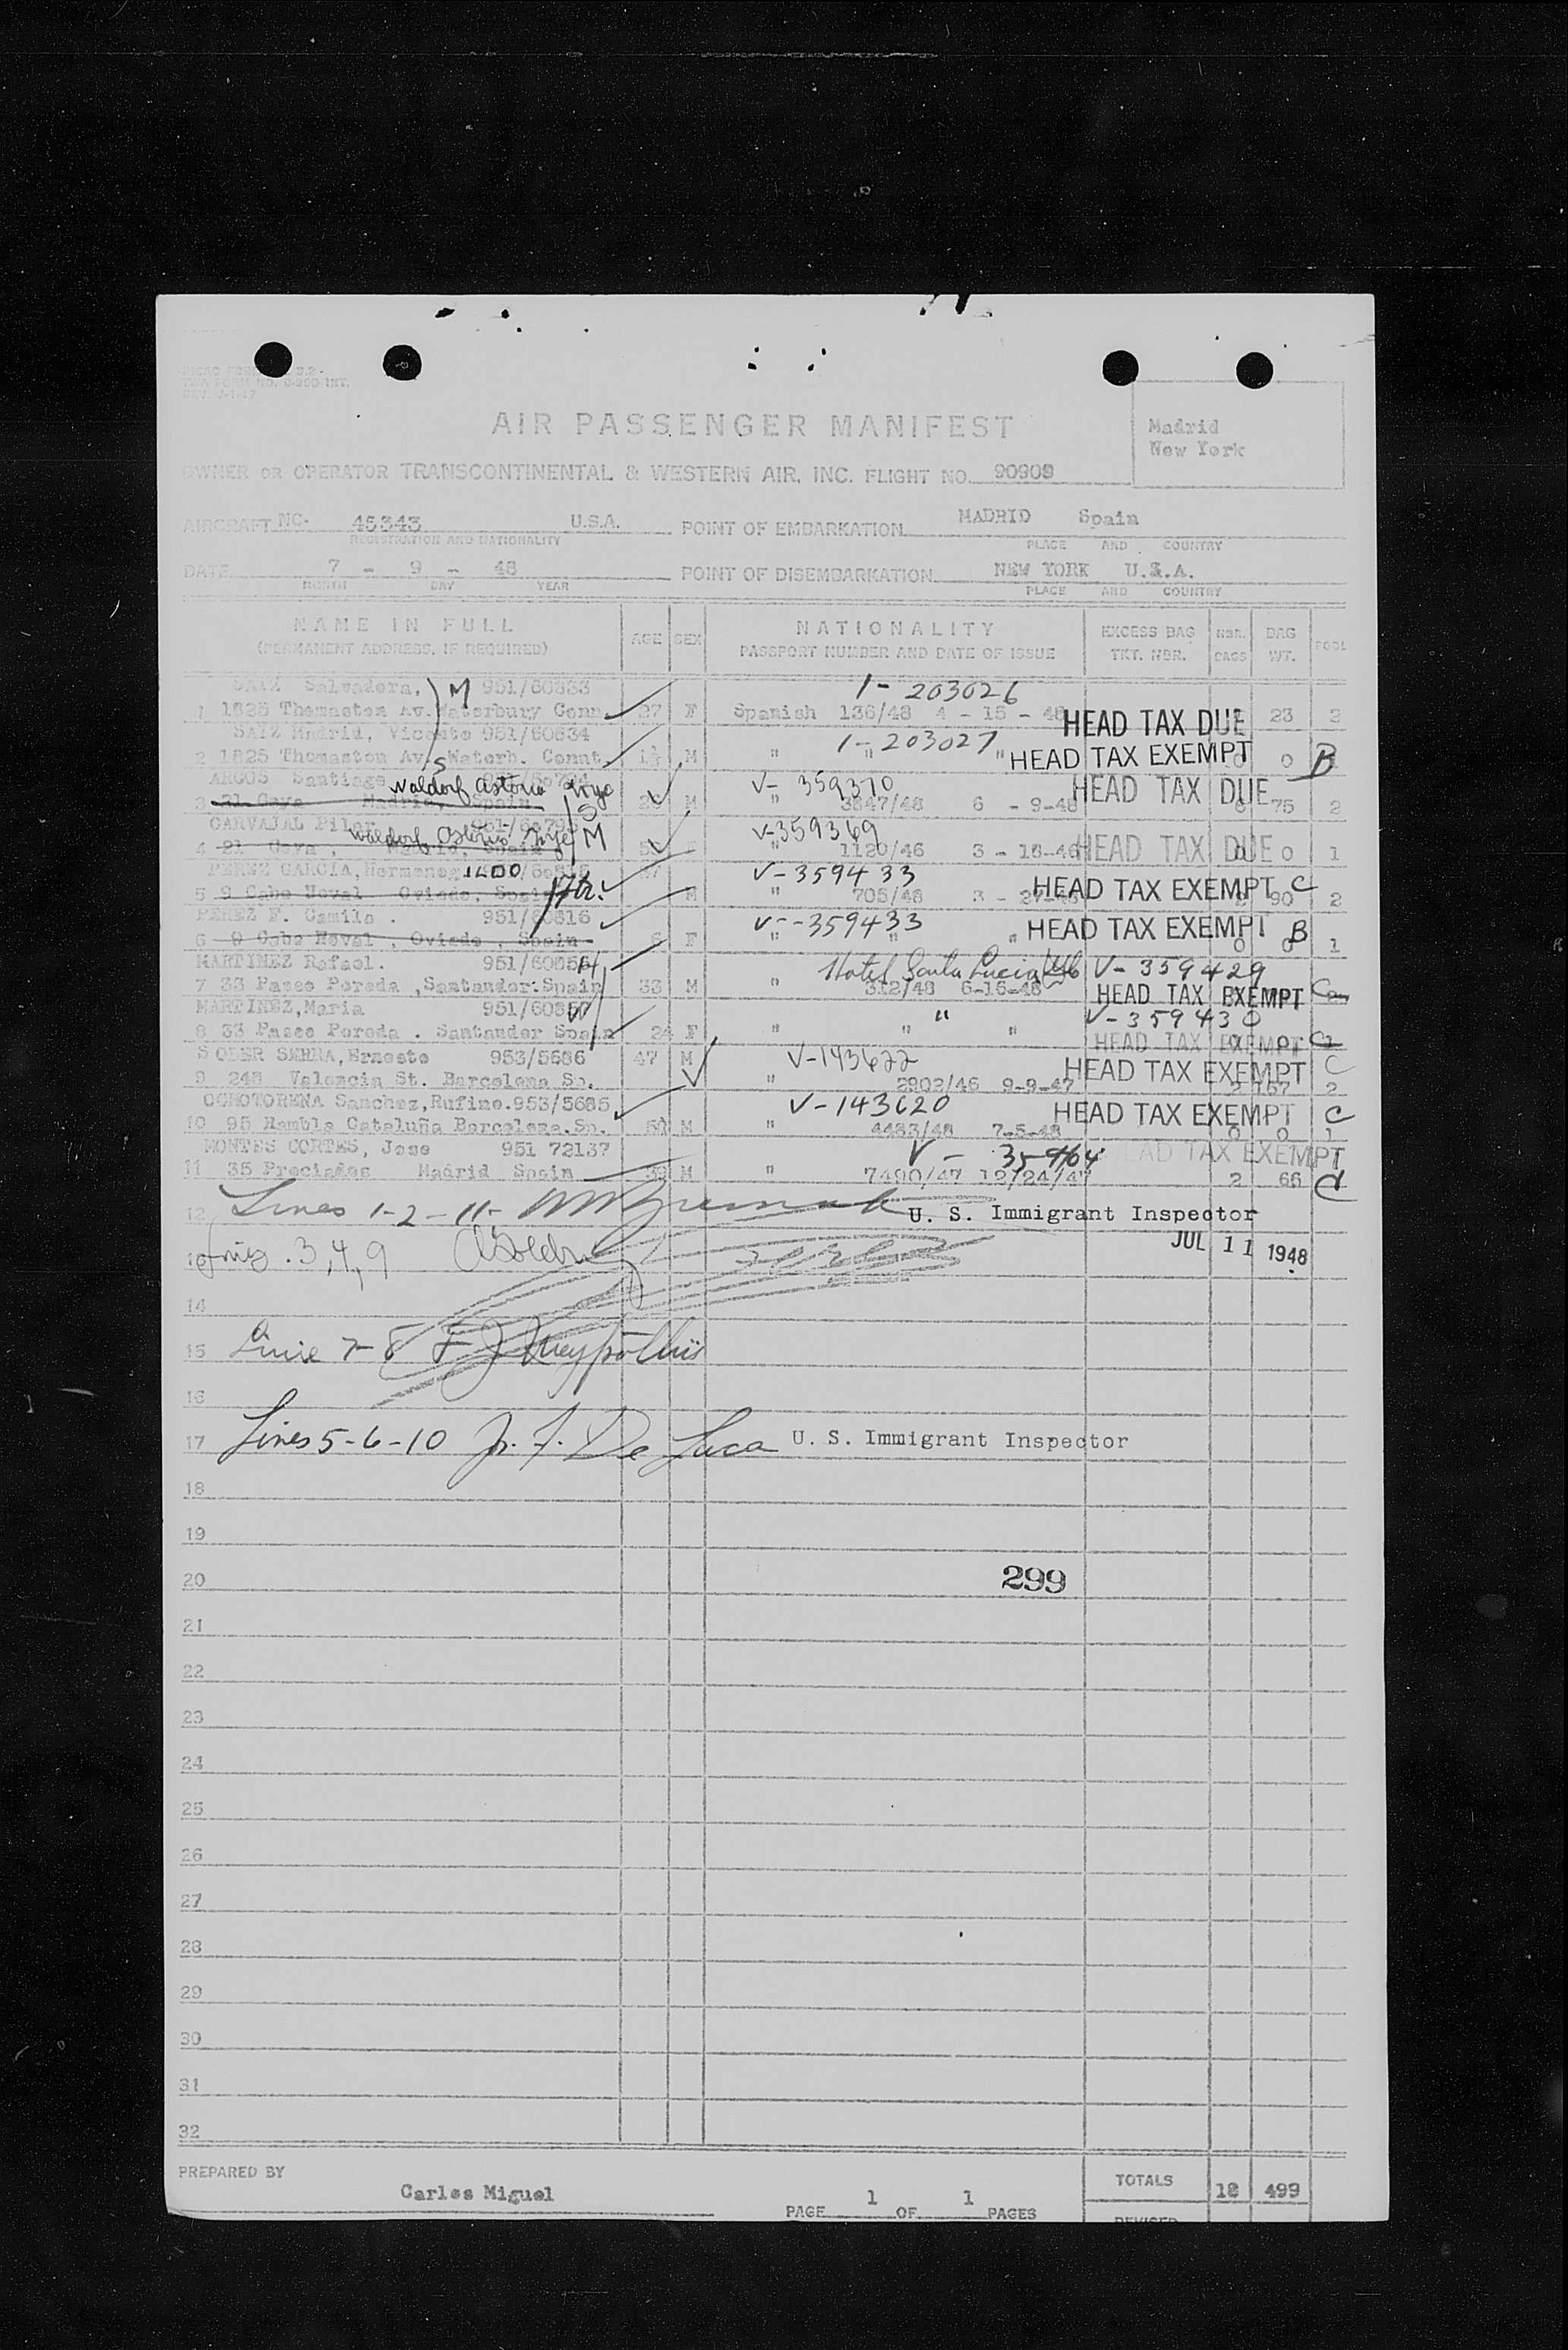 TWA FORM NO. 0-900 INT.
REV. 7-1-47
AIR PASSENGER MANIFEST
Madrid
New York
OWNER OR OPERATOR TRANSCONTINENTAL & WESTERN AIR, INC. FLIGHT NO. 90909
AIRCRAFT NC- 45343 U.S.A. POINT OF EMBARKATION MADRID Spain
REGISTRATION AND NATIONALITY PLACE AND COUNTRY
DATE 7 - 9 - 48 POINT OF DISEMBARKATION NEW YORK U.S.A.
MONTH DAY YEAR PLACE AND COUNTRY
NAME IN FULL AGE SEX NATIONALITY EXCESS BAG NBR. BAG POOL
(PERMANENT ADDRESS, IF REQUIRED) PASSPORT NUMBER AND DATE OF ISSUE TKT. NBR. BAGS WT.
SAIZ Salvadora, M 951/60833 1- 203026
1 1825 Thomaston Av. Waterbury Conn. 27 F Spanish 136/48 4 - 15 - 48 HEAD TAX DUE 23 2
SAIZ Madrid, Vicente 951/60834 1-203027
2 1825 Thomaston Av. Waterb. Connt. M " " " HEAD TAX EXEMPT 0 B
ARGOS Santiago S Waldorf Astoria Nyc V- 359370
3 21 Goya Madrid, Spain S M " 3847/48 6 - 9-48 HEAD TAX DUE 75 2
CARVAJAL Pilar Waldorf Astoria Nyc M V-359369
4 21 Goya, " 1120/46 3 - 18-46 HEAD TAX DUE 0 1
PEREZ GARCIA, V-359433
5 9 Cabo Noval Oviedo, Spain M " 705/48 3 - 27-48 HEAD TAX EXEMPT C 90 2
PEREZ F. Camila . 951/60816 V--359433
6 9 Cabo Noval , Oviedo , Spain 6 F " " " HEAD TAX EXEMPT 0 B 1
MARTINEZ Rafael. Hotel Santa Lucia V-359429
7 33 Paseo Pereda ,Santander.Spain 33 M " 312/48 6-16-48 HEAD TAX EXEMPT C
MARTINEZ,Maria 951/60857 " V-359430
8 33 Paseo Pereda . Santander Spain 24 F " " " HEAD TAX EXEMPT C
SOLER SERRA,Ernesto 953/5686 47 M V-143622 C
9 248 Valencia St. Barcelona Sp. " 2902/46 9-9-47 HEAD TAX EXEMPT 2 167 2
OCHOTORENA Sanchez,Rufino.953/5685 V-143620 HEAD TAX EXEMPT C
10 95 Rambla Cataluña Barcelona.Sp. M " 4483/48 7-5-48 0 0 1
MONTES CORTES, Jose 951 72137 V - HEAD TAX EXEMPT
11 35 Preciados Madrid Spain M " 7490/47 12/24/47 2 66 C
12 Lines 1-2-11- U. S. Immigrant Inspector
13 3,4,9 JUL 11 1948
14
15 Line 7-8 F J
16
17 Lines 5-6-10 De Luca U. S. Immigrant Inspector
18
19
20 299
21
22
23
24
25
26
27
28
29
30
31
32
PREPARED BY Carlos Miguel TOTALS 18 499
PAGE 1 OF 1 PAGES REVISED